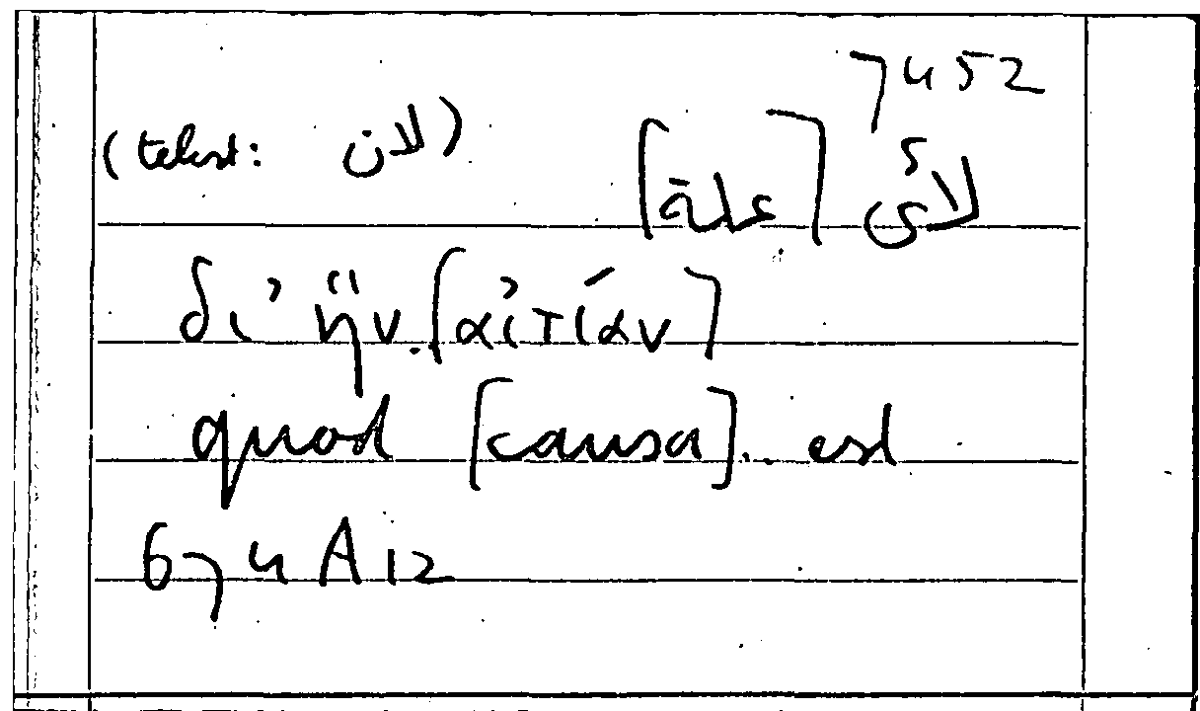 7452
(tekst: لان)
لأى [علة]
δι' ἥν [αἰτίαν]
quod [causa].. est
674 A 12